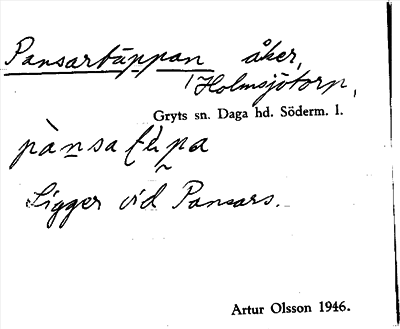 Pansartäppan åker,
Holmsjötorp,
Gryts sn. Daga hd. Söderm. l.
Ligger vid Pansars.
Artur Olsson 1946.